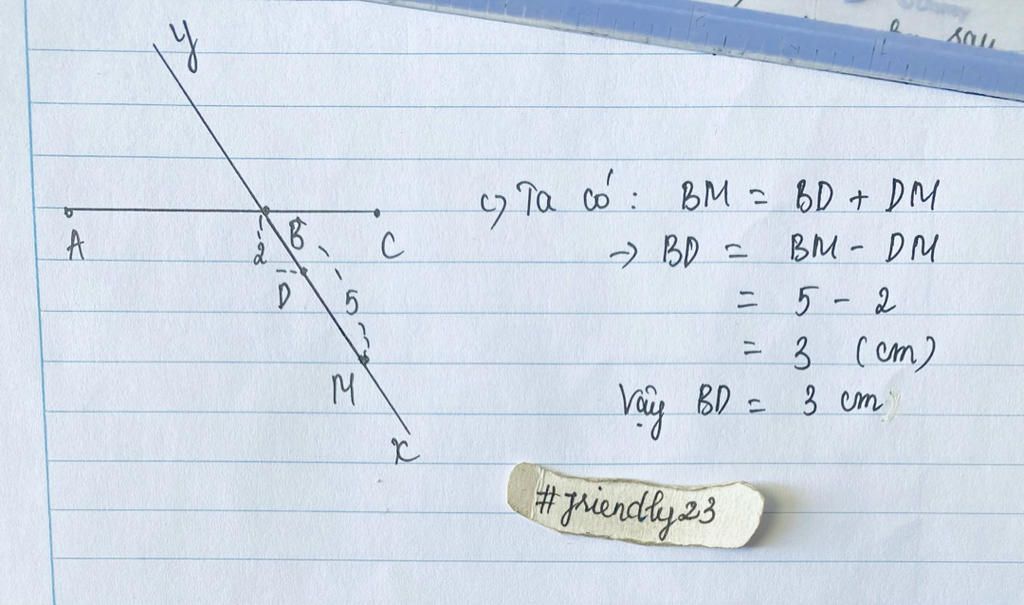 sau
y
A
B
C
2
D
5
M
x
c) Ta có : BM = BD + DM
→ BD = BM - DM
= 5 - 2
= 3 (cm)
Vậy BD = 3 cm
#friendly23